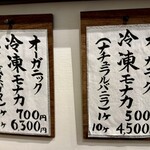 オーガニック
冷凍モナカ
(ナチュラルバニラ)
1ケ 500
10ケ 4,500
オーガニック
冷凍モナカ
700円
6300円